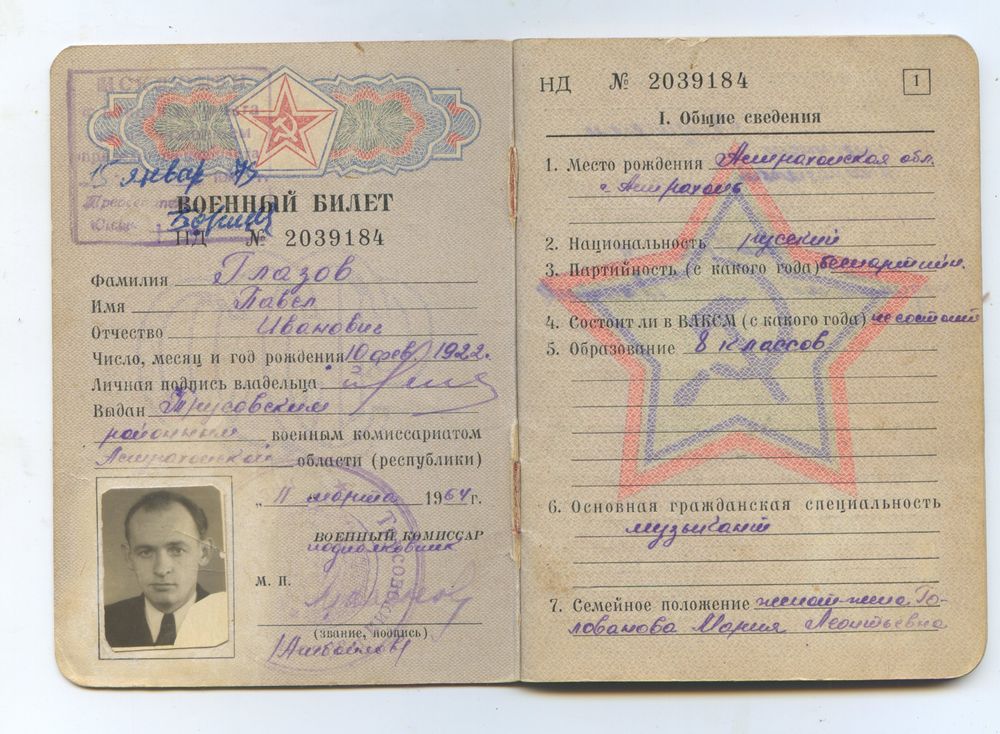 15 январ 73.
ВОЕННЫЙ БИЛЕТ
НД № 2039184
Фамилия Глазов
Имя Павел
Отчество Иванович
Число, месяц и год рождения 10 фев 1922.
Личная подпись владельца
Выдан Трусовским
районным военным комиссариатом
Астраханской области (республики)
„ 11 марта 1964 г.
ВОЕННЫЙ КОМИССАР
подполковник
М. П.
(звание, подпись)
НД № 2039184
1
I. Общие сведения
1. Место рождения Астраханская обл.
г. Астрахань
2. Национальность русский
3. Партийность (с какого года) беспартийн.
4. Состоит ли в ВЛКСМ (с какого года) не состоит
5. Образование 8 классов
6. Основная гражданская специальность
музыкант
7. Семейное положение женат-жена Го-
лованова Мария Леонтьевна